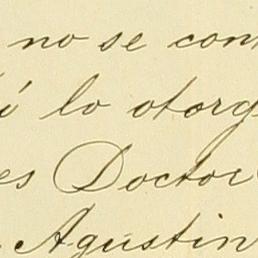 no se con
í lo otorg
es Doctor
Agustin